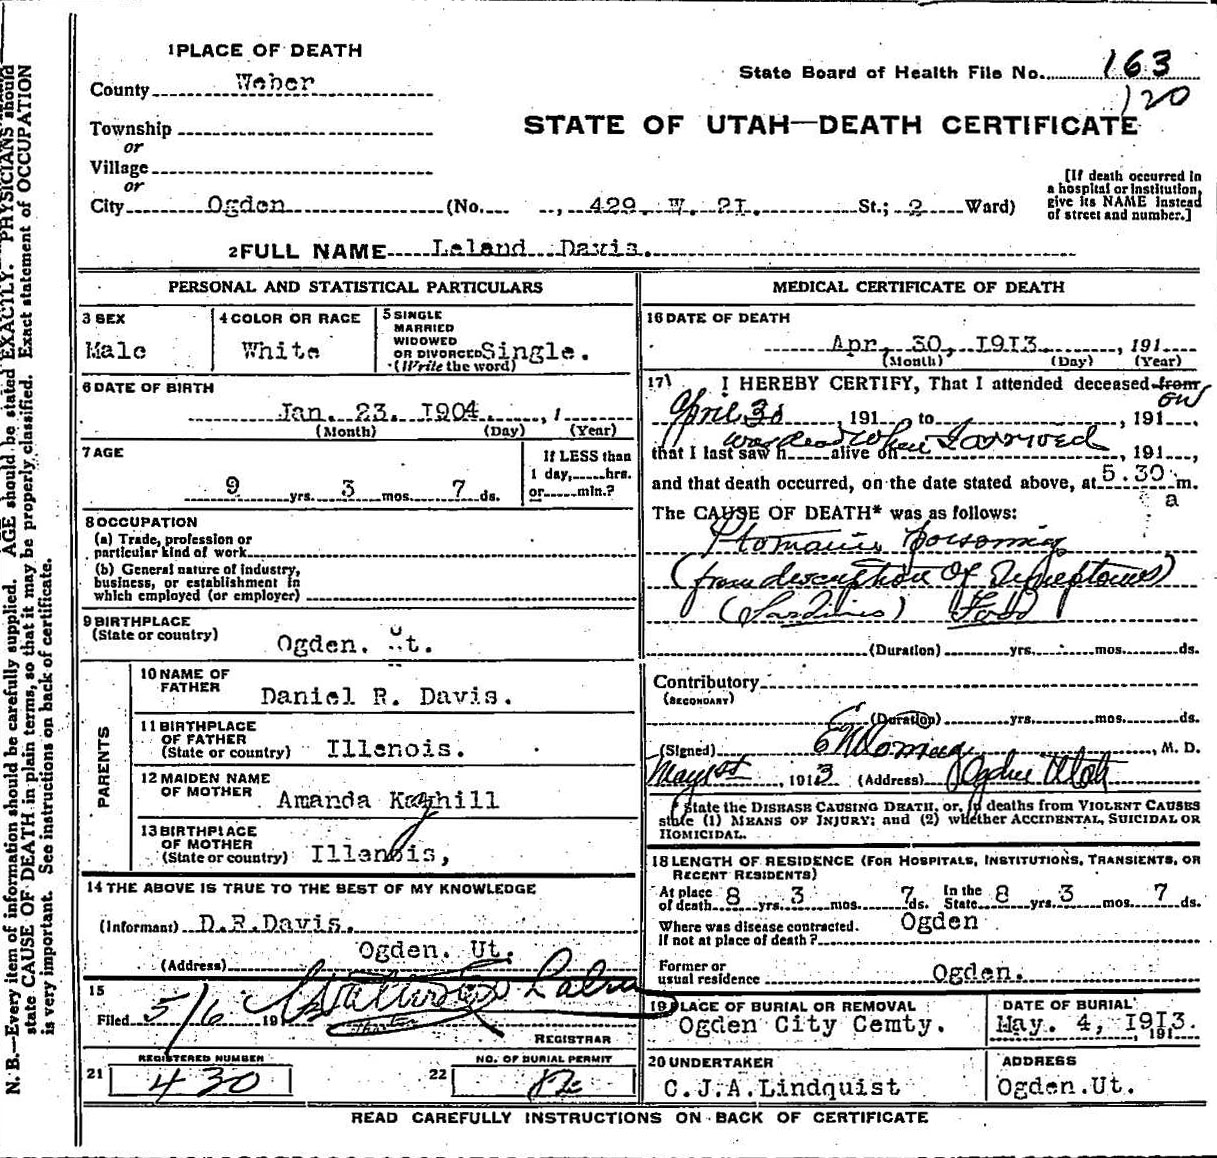 1 PLACE OF DEATH
County Weber
State Board of Health File No. 163
120
Township
or
Village
or
City Ogden (No. , 429 W. 21. St.; 2 Ward)
STATE OF UTAH—DEATH CERTIFICATE
[If death occurred in
a hospital or institution,
give its NAME instead
of street and number.]
2 FULL NAME Leland Davis.
PERSONAL AND STATISTICAL PARTICULARS
3 SEX
Male
4 COLOR OR RACE
White
5 SINGLE
MARRIED
WIDOWED
OR DIVORCED Single.
(Write the word)
6 DATE OF BIRTH
Jan. 23. 1904. , 1
(Month) (Day) (Year)
7 AGE
9 yrs. 3 mos. 7 ds.
If LESS than
1 day, hrs.
or min.?
8 OCCUPATION
(a) Trade, profession or
particular kind of work
(b) General nature of industry,
business, or establishment in
which employed (or employer)
9 BIRTHPLACE
(State or country)
Ogden. Ut.
PARENTS
10 NAME OF
FATHER
Daniel R. Davis.
11 BIRTHPLACE
OF FATHER
(State or country) Illenois.
12 MAIDEN NAME
OF MOTHER
Amanda Kayhill
13 BIRTHPLACE
OF MOTHER
(State or country) Illenois,
14 THE ABOVE IS TRUE TO THE BEST OF MY KNOWLEDGE
(Informant) D.R.Davis.
(Address) Ogden. Ut.
15
Filed 5/6 191
REGISTRAR
REGISTERED NUMBER
21 430
NO. OF BURIAL PERMIT
22
MEDICAL CERTIFICATE OF DEATH
16 DATE OF DEATH
Apr. 30, 1913. , 191
(Month) (Day) (Year)
17 I HEREBY CERTIFY, That I attended deceased from
on
April 30 , 191 to , 191 ,
was dead when I arrived
that I last saw h alive on , 191 ,
and that death occurred, on the date stated above, at 5.30 m.
a
The CAUSE OF DEATH* was as follows:
Ptomaine poisoning
(from description of symptoms)
(Sardines) Food
(Duration) yrs. mos. ds.
Contributory
(SECONDARY)
(Duration) yrs. mos. ds.
(Signed) , M. D.
May 1st , 1913 (Address) Ogden Utah
* State the DISEASE CAUSING DEATH, or, in deaths from VIOLENT CAUSES
state (1) MEANS OF INJURY; and (2) whether ACCIDENTAL, SUICIDAL OR
HOMICIDAL.
18 LENGTH OF RESIDENCE (FOR HOSPITALS, INSTITUTIONS, TRANSIENTS, OR
RECENT RESIDENTS)
At place
of death 8 yrs. 3 mos. 7 ds. In the
State 8 yrs. 3 mos. 7 ds.
Where was disease contracted.
If not at place of death? Ogden
Former or
usual residence Ogden.
19 PLACE OF BURIAL OR REMOVAL
Ogden City Cemty.
DATE OF BURIAL
May. 4, 1913. 191
20 UNDERTAKER
C.J.A.Lindquist
ADDRESS
Ogden.Ut.
READ CAREFULLY INSTRUCTIONS ON BACK OF CERTIFICATE
N. B.—Every item of information should be carefully supplied. AGE should be stated EXACTLY. PHYSICIANS should
state CAUSE OF DEATH in plain terms, so that it may be properly classified. Exact statement of OCCUPATION
is very important. See instructions on back of certificate.